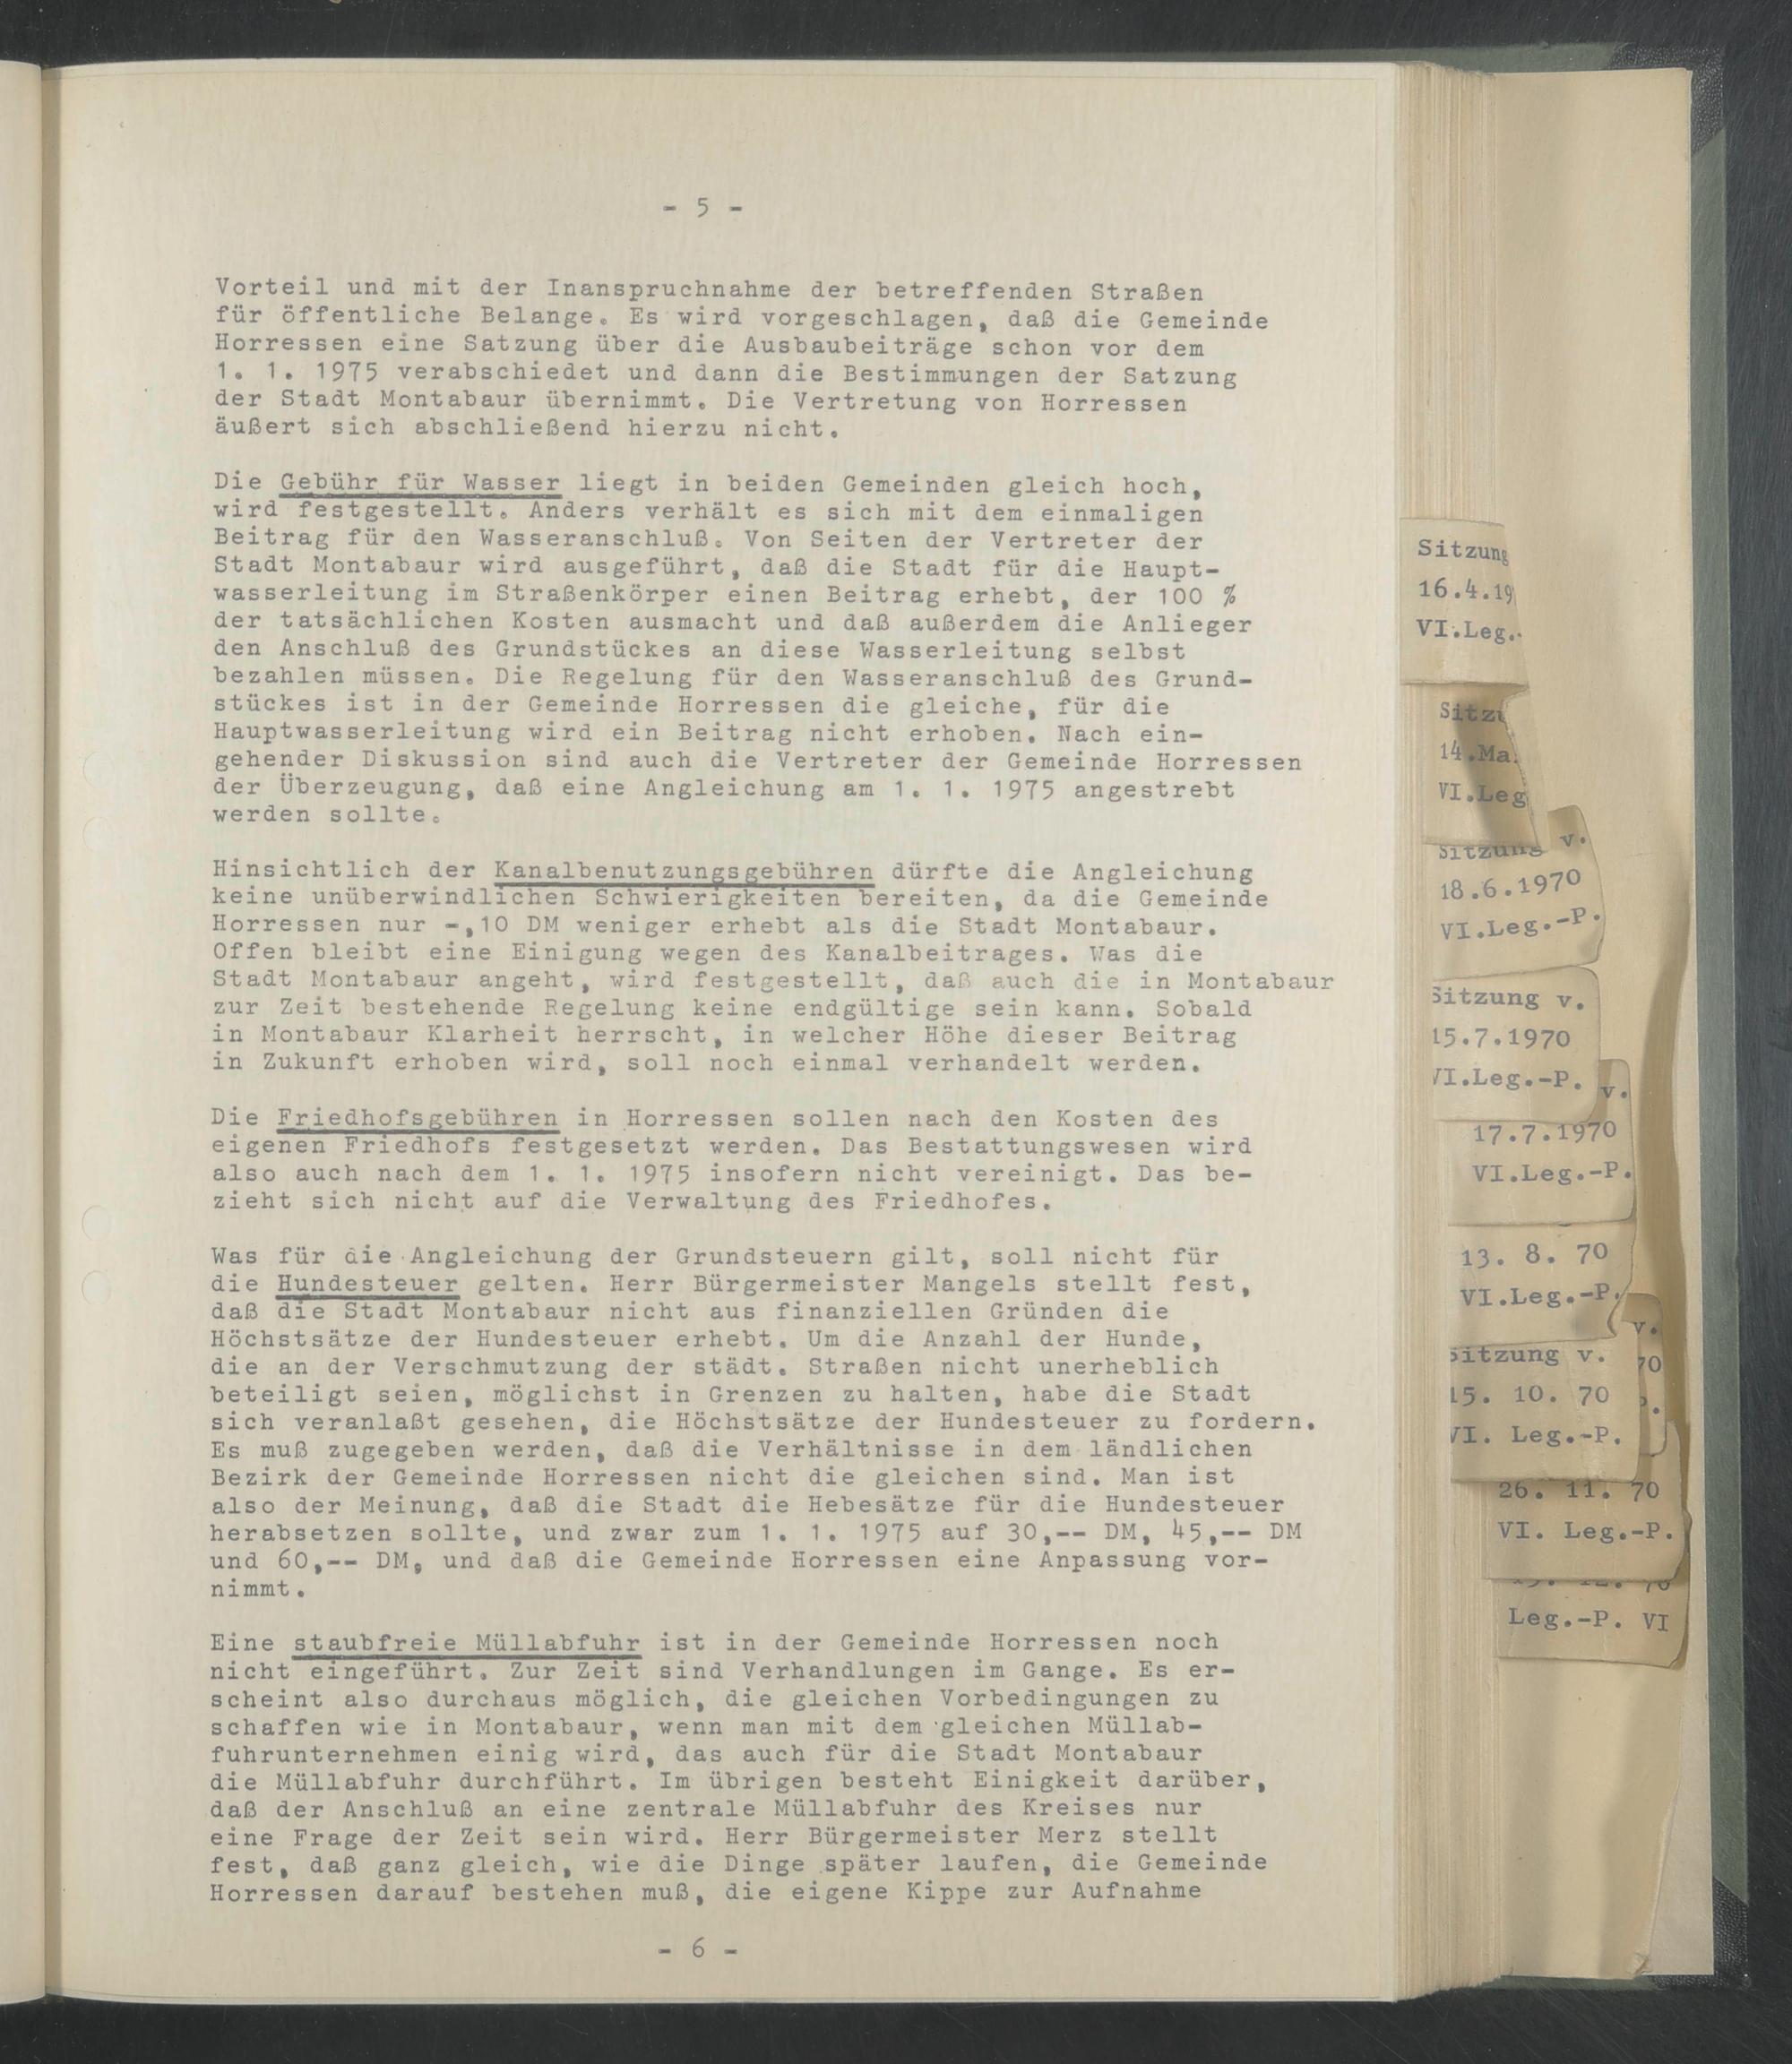 - 5 -
Vorteil und mit der Inanspruchnahme der betreffenden Straßen
für öffentliche Belange. Es wird vorgeschlagen, daß die Gemeinde
Horressen eine Satzung über die Ausbaubeiträge schon vor dem
1. 1. 1975 verabschiedet und dann die Bestimmungen der Satzung
der Stadt Montabaur übernimmt. Die Vertretung von Horressen
äußert sich abschließend hierzu nicht.
Die Gebühr für Wasser liegt in beiden Gemeinden gleich hoch,
wird festgestellt. Anders verhält es sich mit dem einmaligen
Beitrag für den Wasseranschluß. Von Seiten der Vertreter der
Stadt Montabaur wird ausgeführt, daß die Stadt für die Haupt-
wasserleitung im Straßenkörper einen Beitrag erhebt, der 100 %
der tatsächlichen Kosten ausmacht und daß außerdem die Anlieger
den Anschluß des Grundstückes an diese Wasserleitung selbst
bezahlen müssen. Die Regelung für den Wasseranschluß des Grund-
stückes ist in der Gemeinde Horressen die gleiche, für die
Hauptwasserleitung wird ein Beitrag nicht erhoben. Nach ein-
gehender Diskussion sind auch die Vertreter der Gemeinde Horressen
der Überzeugung, daß eine Angleichung am 1. 1. 1975 angestrebt
werden sollte.
Hinsichtlich der Kanalbenutzungsgebühren dürfte die Angleichung
keine unüberwindlichen Schwierigkeiten bereiten, da die Gemeinde
Horressen nur -,10 DM weniger erhebt als die Stadt Montabaur.
Offen bleibt eine Einigung wegen des Kanalbeitrages. Was die
Stadt Montabaur angeht, wird festgestellt, daß auch die in Montabaur
zur Zeit bestehende Regelung keine endgültige sein kann. Sobald
in Montabaur Klarheit herrscht, in welcher Höhe dieser Beitrag
in Zukunft erhoben wird, soll noch einmal verhandelt werden.
Die Friedhofsgebühren in Horressen sollen nach den Kosten des
eigenen Friedhofs festgesetzt werden. Das Bestattungswesen wird
also auch nach dem 1. 1. 1975 insofern nicht vereinigt. Das be-
zieht sich nicht auf die Verwaltung des Friedhofes.
Was für die Angleichung der Grundsteuern gilt, soll nicht für
die Hundesteuer gelten. Herr Bürgermeister Mangels stellt fest,
daß die Stadt Montabaur nicht aus finanziellen Gründen die
Höchstsätze der Hundesteuer erhebt. Um die Anzahl der Hunde,
die an der Verschmutzung der städt. Straßen nicht unerheblich
beteiligt seien, möglichst in Grenzen zu halten, habe die Stadt
sich veranlaßt gesehen, die Höchstsätze der Hundesteuer zu fordern.
Es muß zugegeben werden, daß die Verhältnisse in dem ländlichen
Bezirk der Gemeinde Horressen nicht die gleichen sind. Man ist
also der Meinung, daß die Stadt die Hebesätze für die Hundesteuer
herabsetzen sollte, und zwar zum 1. 1. 1975 auf 30,-- DM, 45,-- DM
und 60,-- DM, und daß die Gemeinde Horressen eine Anpassung vor-
nimmt.
Eine staubfreie Müllabfuhr ist in der Gemeinde Horressen noch
nicht eingeführt. Zur Zeit sind Verhandlungen im Gange. Es er-
scheint also durchaus möglich, die gleichen Vorbedingungen zu
schaffen wie in Montabaur, wenn man mit dem gleichen Müllab-
fuhrunternehmen einig wird, das auch für die Stadt Montabaur
die Müllabfuhr durchführt. Im übrigen besteht Einigkeit darüber,
daß der Anschluß an eine zentrale Müllabfuhr des Kreises nur
eine Frage der Zeit sein wird. Herr Bürgermeister Merz stellt
fest, daß ganz gleich, wie die Dinge später laufen, die Gemeinde
Horressen darauf bestehen muß, die eigene Kippe zur Aufnahme
- 6 -
Sitzung
16.4.19
VI.Leg.-
Sitzu
14.Ma
VI.Leg
Sitzung v.
18.6.1970
VI.Leg.-P.
Sitzung v.
15.7.1970
VI.Leg.-P.
v.
17.7.1970
VI.Leg.-P.
13. 8. 70
VI.Leg.-P.
v.
70
Sitzung v.
15. 10. 70
VI. Leg.-P.
26. 11. 70
VI. Leg.-P.
Leg.-P. VI